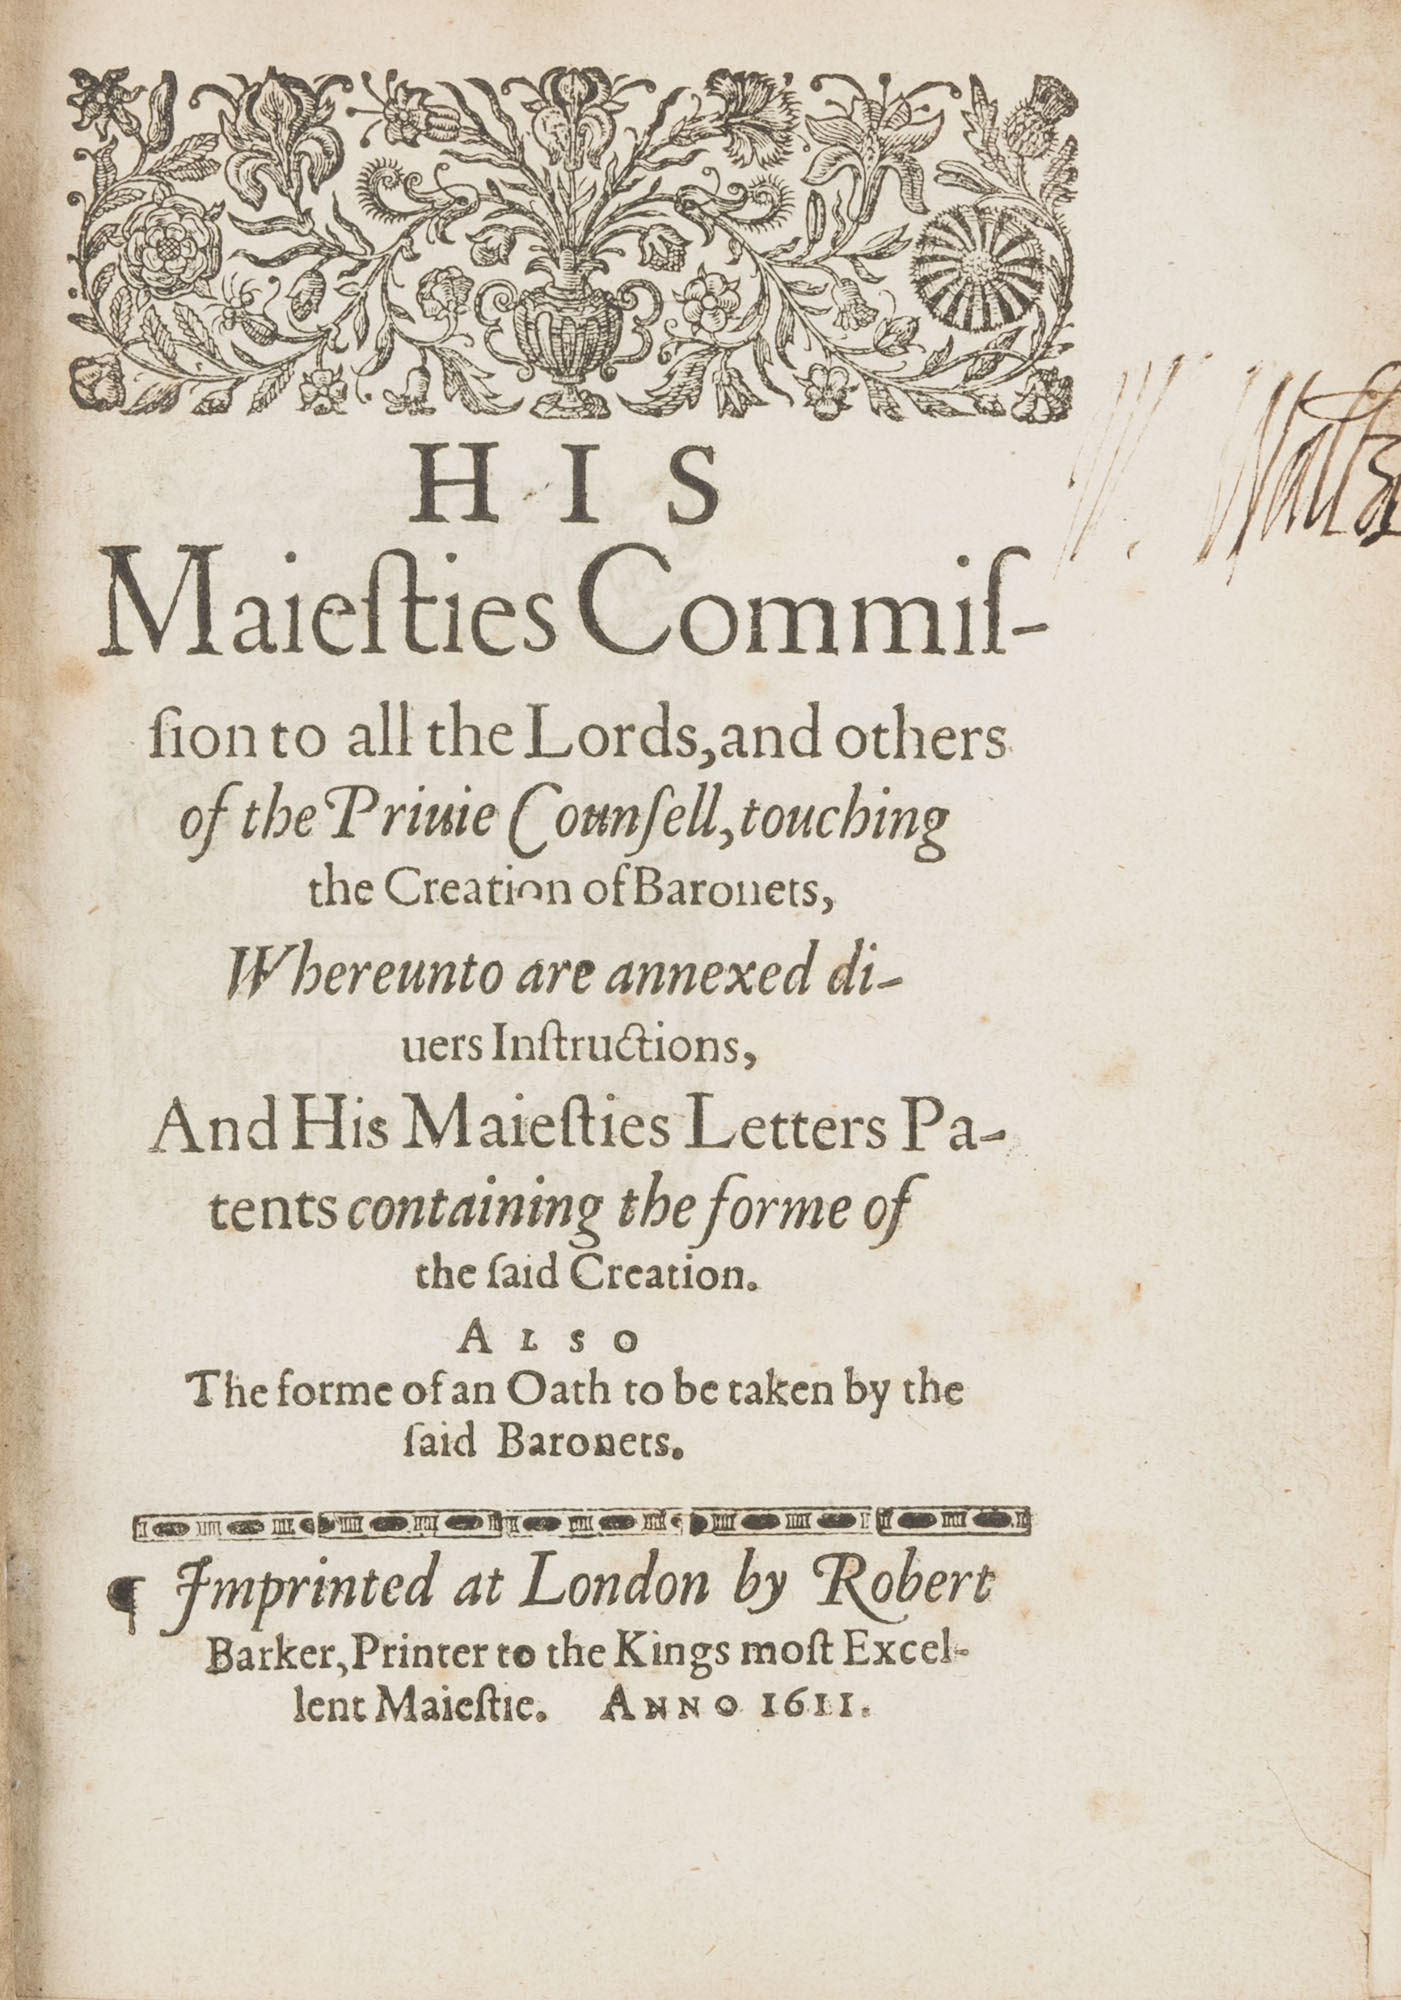 HIS
Maieſties Commiſ-
ſion to all the Lords, and others
of the Priuie Counſell, touching
the Creation of Baronets,
Whereunto are annexed di-
uers Inſtructions,
And His Maieſties Letters Pa-
tents containing the forme of
the ſaid Creation.
ALSO
The forme of an Oath to be taken by the
ſaid Baronets.
¶ Imprinted at London by Robert
Barker, Printer to the Kings moſt Excel-
lent Maieſtie. ANNO 1611.
W.